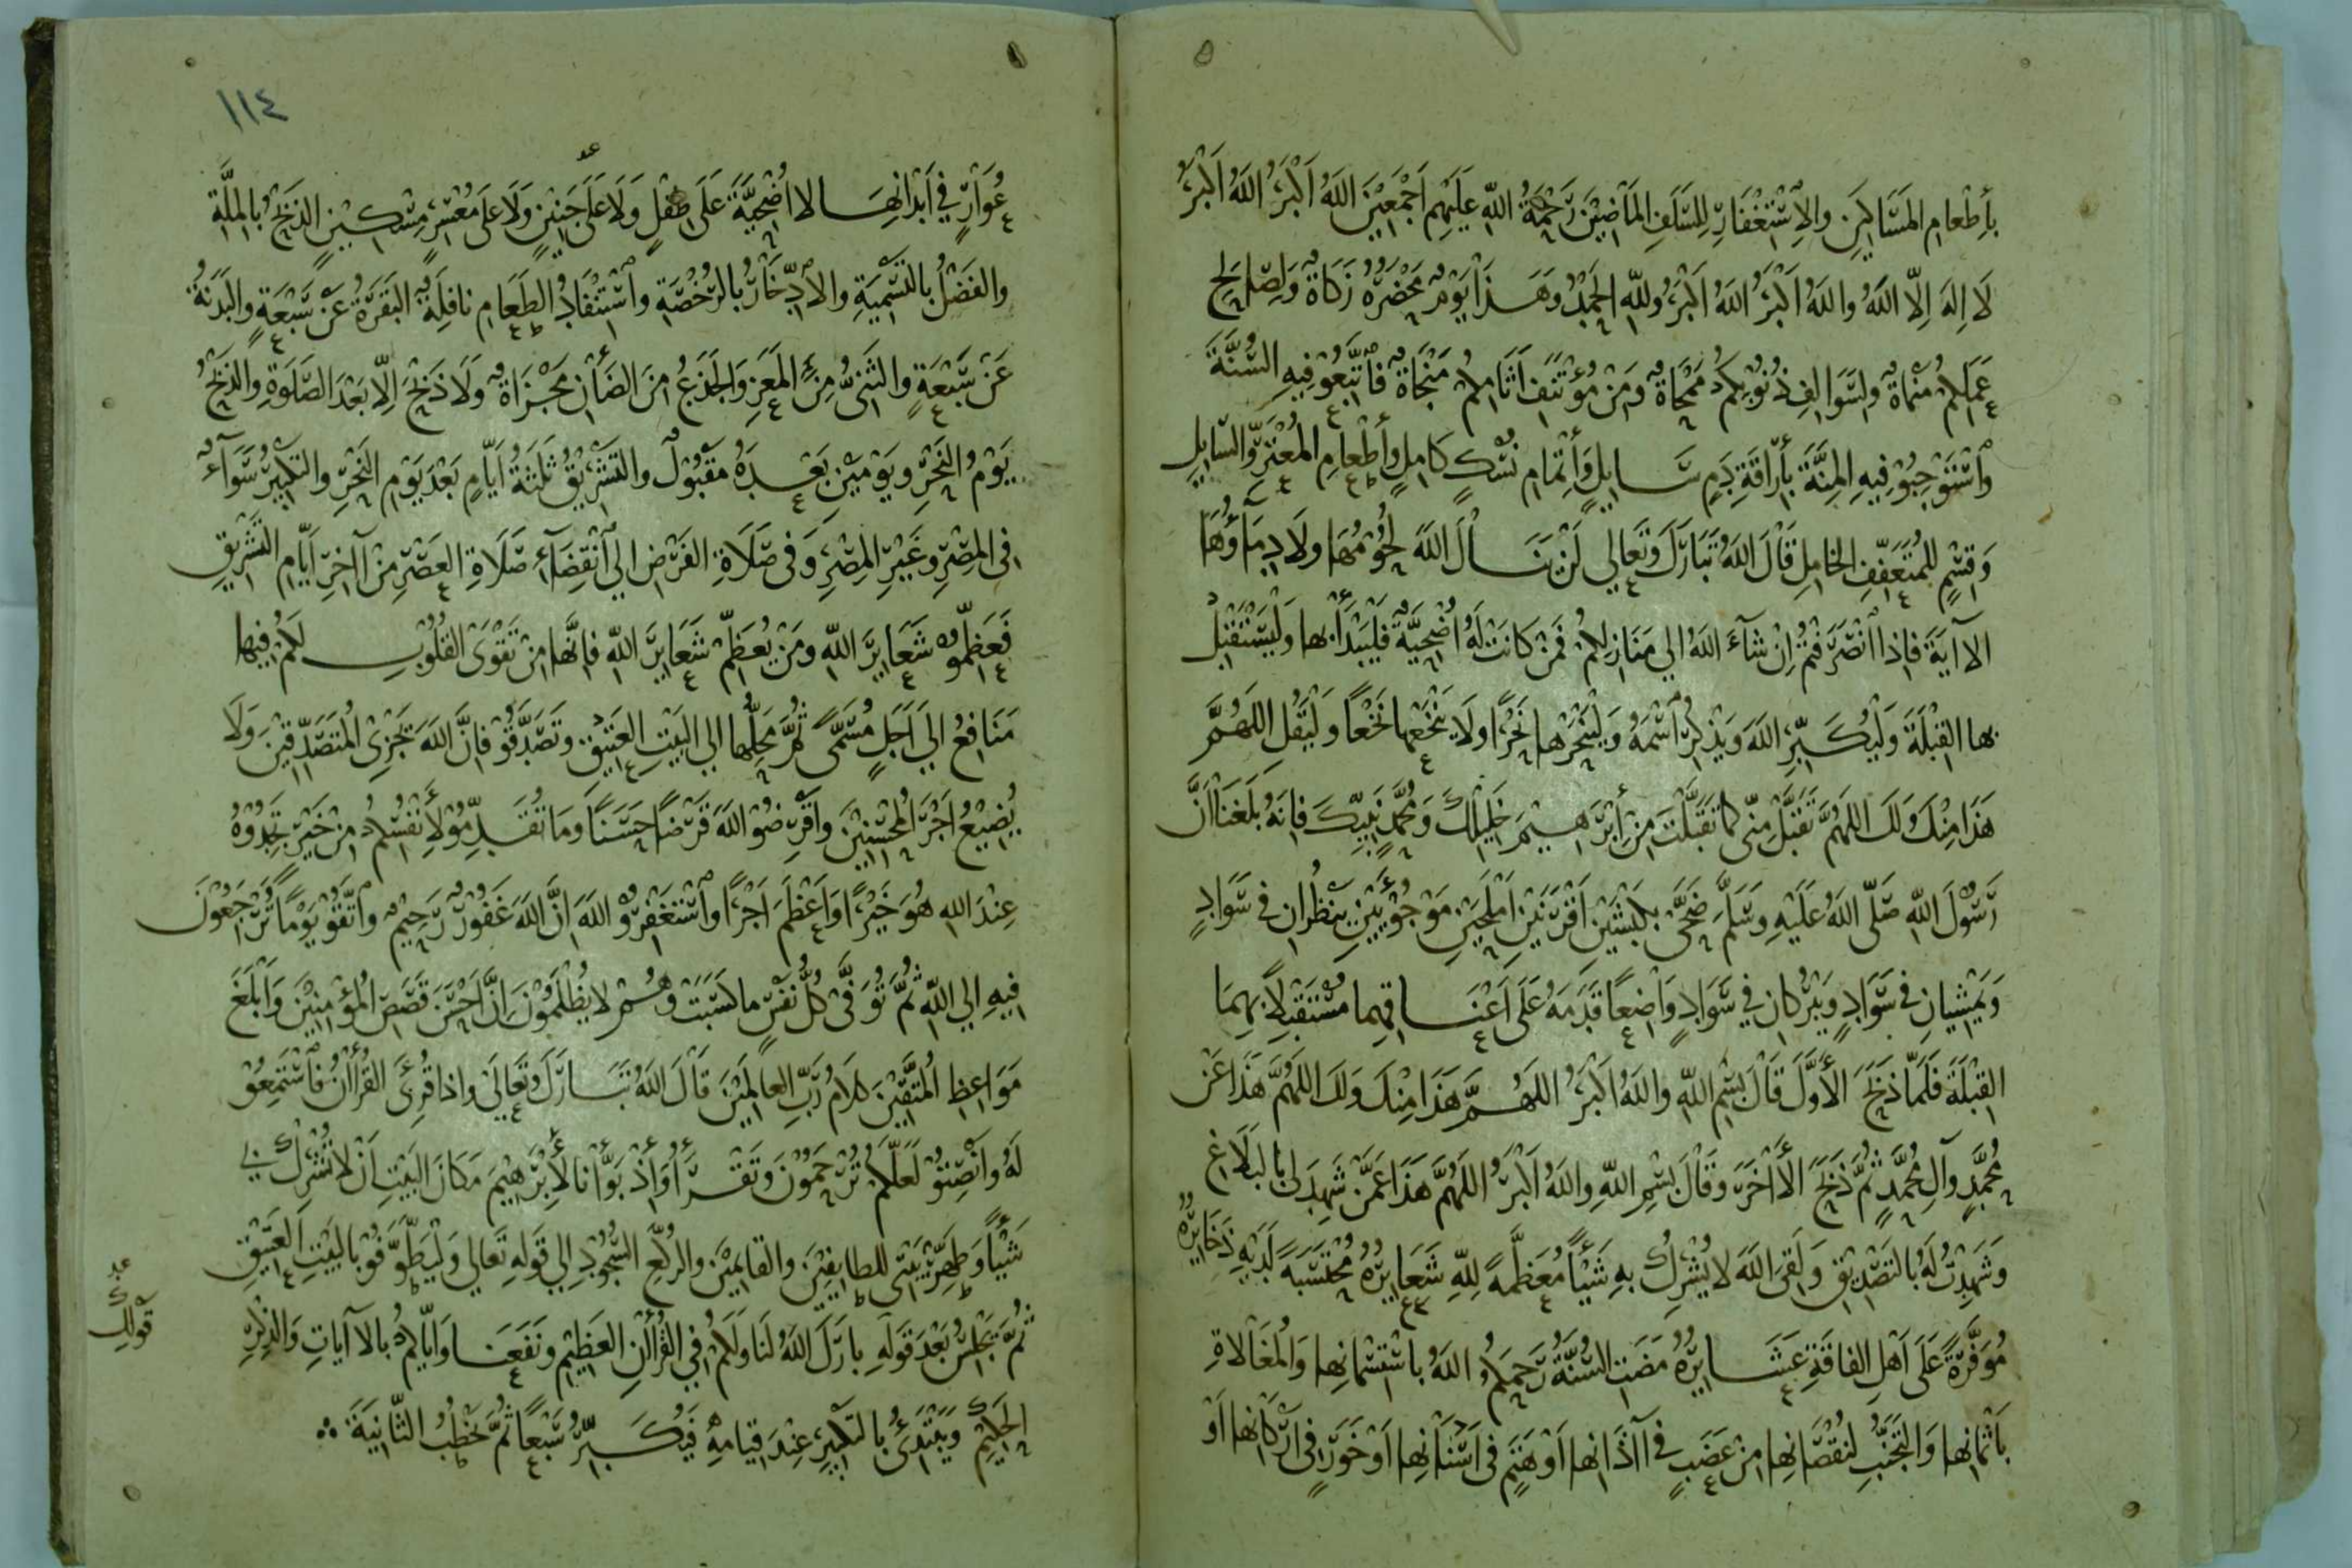 بأِطْعامِ المَسَاكِينِ والِاسْتِغْفَارِ لِلسَّلَفِ المَاضِيْنَ رَحْمَةُ اللهِ عَلَيْهِم اَجْمَعِيْنَ اللهُ اَكْبَرُ اللهُ اَكْبَرُ
لَا اِلهَ اِلّا اللهُ واللهُ اَكْبَرُ اللهُ اَكْبَرُ وللهِ الحَمْدُ وَهَذَا يَوْمٌ مَحْضَرُهُ زَكَاةٌ وَلِصَالِحِ
عَمَلِكُمْ مَنْمَاةٌ ولِسَوَالِفِ ذُنُوبِكُمْ مَمْحَاةٌ وَمِنْ مُؤْتَنَفِ اَثَامِكُمْ مَنْجَاةٌ فَاتَّبِعُوْ فِيهِ السُّنَّةَ
وَاسْتَوْجِبُوْ فِيهِ المِنَّةَ بأِرَاقَةِ دَمٍ سَايِلٍ وَأِتْمَامِ نُسُكٍ كَامِلٍ وأِطْعامِ المُعْتَرِّ والسّايِلِ
وَقَسْمٍ لِلمُتَعَفِّفِ الخامِلِ قَالَ اللهُ تَبَارَكَ وَتَعالى لَنْ يَنَالَ اللهَ لُحُوْمُهَا ولَا دِمَآؤُهَا
الاآيَةَ فاِذا انْصَرَفْتُمْ اِنْ شآءَ اللهُ الى مَنَازِلِكُمْ فَمَنْ كَانَتْ لَهُ اُضْحِيَّةٌ فَلْيَبْدَأْ بها وَلْيَسْتَقْبِلْ
بها القِبْلَةَ وَلْيُكَبِّرِ اللهَ وَيَذْكُرِ اسْمَهُ وَلْيَنْحَرْها نَحْرًا ولَا يَنْخَعْها نَخْعًا وَلْيَقُلِ اللهُمَّ
هَذَا مِنْكَ وَلَكَ اللهُمَّ تَقَبَّلْ مِنّى كَما تَقَبَّلْتَ مِنْ اِبْرَهِيْمَ خَلِيْلِكَ وَمُحَمَّدٍ نَبِيِّكَ فاِنَهُ بَلَغَنَا اَنَّ
رَسُوْلَ اللهِ صَلّى اللهُ عَلَيْهِ وَسَلَّمَ ضَحَّى بِكَبْشَيْنِ اَقْرَنَيْنِ اَمْلَحَيْنِ مَوْجُوْئَيْنِ يَنْظُرانِ فى سَوَادٍ
وَيَمْشِيانِ فى سَوَادٍ وَيَبْرُكانِ في سَوَادٍ وَاضِعًا قَدَمَهُ عَلَى اَعْنَاقِهِما مُسْتَقْبِلًا بِهِمَا
القِبْلَةَ فَلَمّا ذَبَحَ الأَوَّلَ قَالَ بِسْمِ اللهِ واللهُ اَكْبَرُ اللهُمَّ هَذَا مِنْكَ وَلَكَ اللهُمَّ هَذَا عَنْ
مُحَمَّدٍ وآلِ مُحَمَّدٍ ثُمَّ ذَبَحَ الأاخَرَ وَقَالَ بِسْمِ اللهِ واللهُ اَكْبَرُ اللهُمَّ هَذَا عَمَّنْ شَهِدَ لى بالبَلَاغِ
وَشَهِدْتُ لَهُ بالتَصْدِيْقِ وَلَقِىَ اللهَ لَا يُشْرِكُ بِهِ شَيْأً مُعَظَّمَةً لِلهِ شَعَايِرُهُ مُحْتَسَبَةً لَدَيْهِ ذَخَايِرُهُ
مُوَفَّرَةً عَلَى اَهْلِ الفاقَةِ عَشَايِرُهُ مَضَتِ السُّنَّةُ رَحِمَكُمُ اللهُ باسْتِسْمانِها وَالمُغَالَاةِ
بَاَثْمَانِها وَالتَجَنُّبِ لِنُقْصَانِها مِنْ عَضَبٍ فى آذَانِها اَوْ هَتَمٍ فى اَسْنَانِها اَوْ خَوَرٍ فى اَرْكَانِها اَوْ
١١٤
عُوَارٍ في اَبْدَانِهَا لا اُضْحِيَّةَ عَلَى طِفْلٍ وَلَا عَلَى جَنِيْنٍ وَلَا عَلَى مُعْسِرٍ مِسْكِيْنٍ الذَبْحُ بالمِلَّةِ
والفَضْلُ بالتَسْمِيَةِ والاِدِّخَارُ بالرُخْصَةِ واسْتِنْفَادُ الطَعَامِ نافِلَةٌ البَقَرَةُ عَنْ سَبْعَةٍ والبَدَنَةُ
عَنْ سَبْعَةٍ والثَنِىُّ مِنَ المَعَزِ وَالجَذَعُ مِنَ الضَأْنِ مَجْزَاةٌ وَلَا ذَبْحَ اِلّا بَعْدَ الصَّلَوةِ والذَبْحُ
يَوْمُ النَحْرِ ويَوْمَيْنِ بَعْدَهُ مَقْبُولٌ والتَشْرِيْقُ ثَلَثَةُ اَيّامٍ بَعْدَ يَوْمِ النَحْرِ والتَكْبِيْرُ سَوَآءٌ
فى المِصْرِ وغَيْرِ المِصْرِ وَفى صَلَاةِ الفَرْضِ الى انْقِضَآءِ صَلَاةِ العَصْرِ مِنْ اآخِرِ اَيّامِ التَشْرِيقِ
فَعَظِّمُوْ شَعَايِرَ اللهِ وَمَنْ يُعَظِّمْ شَعَايِرَ اللهِ فاِنَّها مِنْ تَقْوَى القُلُوْبِ لَكُمْ فِيها
مَنَافِعُ الى اَجَلٍ مُسَمَّى ثُمَّ مَحِلُّها الى البَيْتِ العَتِيْقِ وتَصَدَّقُوْ فاِنَّ اللهَ يَجْزِى المُتَصَدِّقِيْنَ وَلَا
يُضِيْعُ اَجْرَ المُحْسِنِيْنَ واَقْرِضُوْ اللهَ قَرْضًا حَسَنًا وَمَا تُقَدِّمُوْ لِأَنْفُسِكُمْ مِنْ خَيْرٍ تَجِدُوْهُ
عِنْدَ اللهِ هُوَ خَيْرًا وَاَعْظَمَ اَجْرًا واسْتَغْفِرُوْ اللهَ اِنَّ اللهَ غَفُوْرٌ رَحِيْمٌ واتَّقُوْ يَوْمًا تُرْجَعُوْنَ
فِيهِ اِلى اللهِ ثُمَّ تُوَفَّى كُلُّ نَفْسٍ ما كَسَبَتْ وَهُمْ لا يُظْلَمُوْنَ اِنَّ اَحْسَنَ قَصَصِ المُؤْمِنِيْنَ وَاَبْلَغَ
مَوَاعِظِ المُتَّقِيْنَ كَلَامُ رَبِّ العالَمِيْنَ قَالَ اللهُ تَبَارَكَ وَتَعَالَى واِذا قُرِئَ القُرْاانُ فاسْتَمِعُوْ
لَهُ وَانْصِتُوْ لَعَلَّكُمْ تُرْحَمُوْنَ وَتَقْرَأُ وَاِذْ بَوَّأْنا لأِبْرَهِيْمَ مَكَانَ البَيْتِ اَنْ لا تُشْرِكْ بى
شَيْأً وَطَهِّرْ بَيْتى للطايِفِيْنَ والقايِمِيْنَ والرُكَّعِ السُجُوْدِ اِلى قَوْلِهِ تَعالى وَلْيَطَّوَّفُوْ بالبَيْتِ العَتِيْقِ
ثُمَّ تَجْلِسُ بَعْدَ قَوْلِهِ بارَكَ اللهُ لَنَا وَلَكُمْ فى القُرْاانِ العَظِيْمِ ونَفَعَنَا وَاِيّاكُمْ بالاآيَاتِ وَالذِكْرِ
قَوْلِكَ
الحَكِيْمِ وَيَبْتَدِئُ بالتَكْبِيْرِ عِنْدَ قِيامِهِ فَيُكَبِّرُ سَبْعًا ثُمَّ يَخْطُبُ الثّانِيَةَ